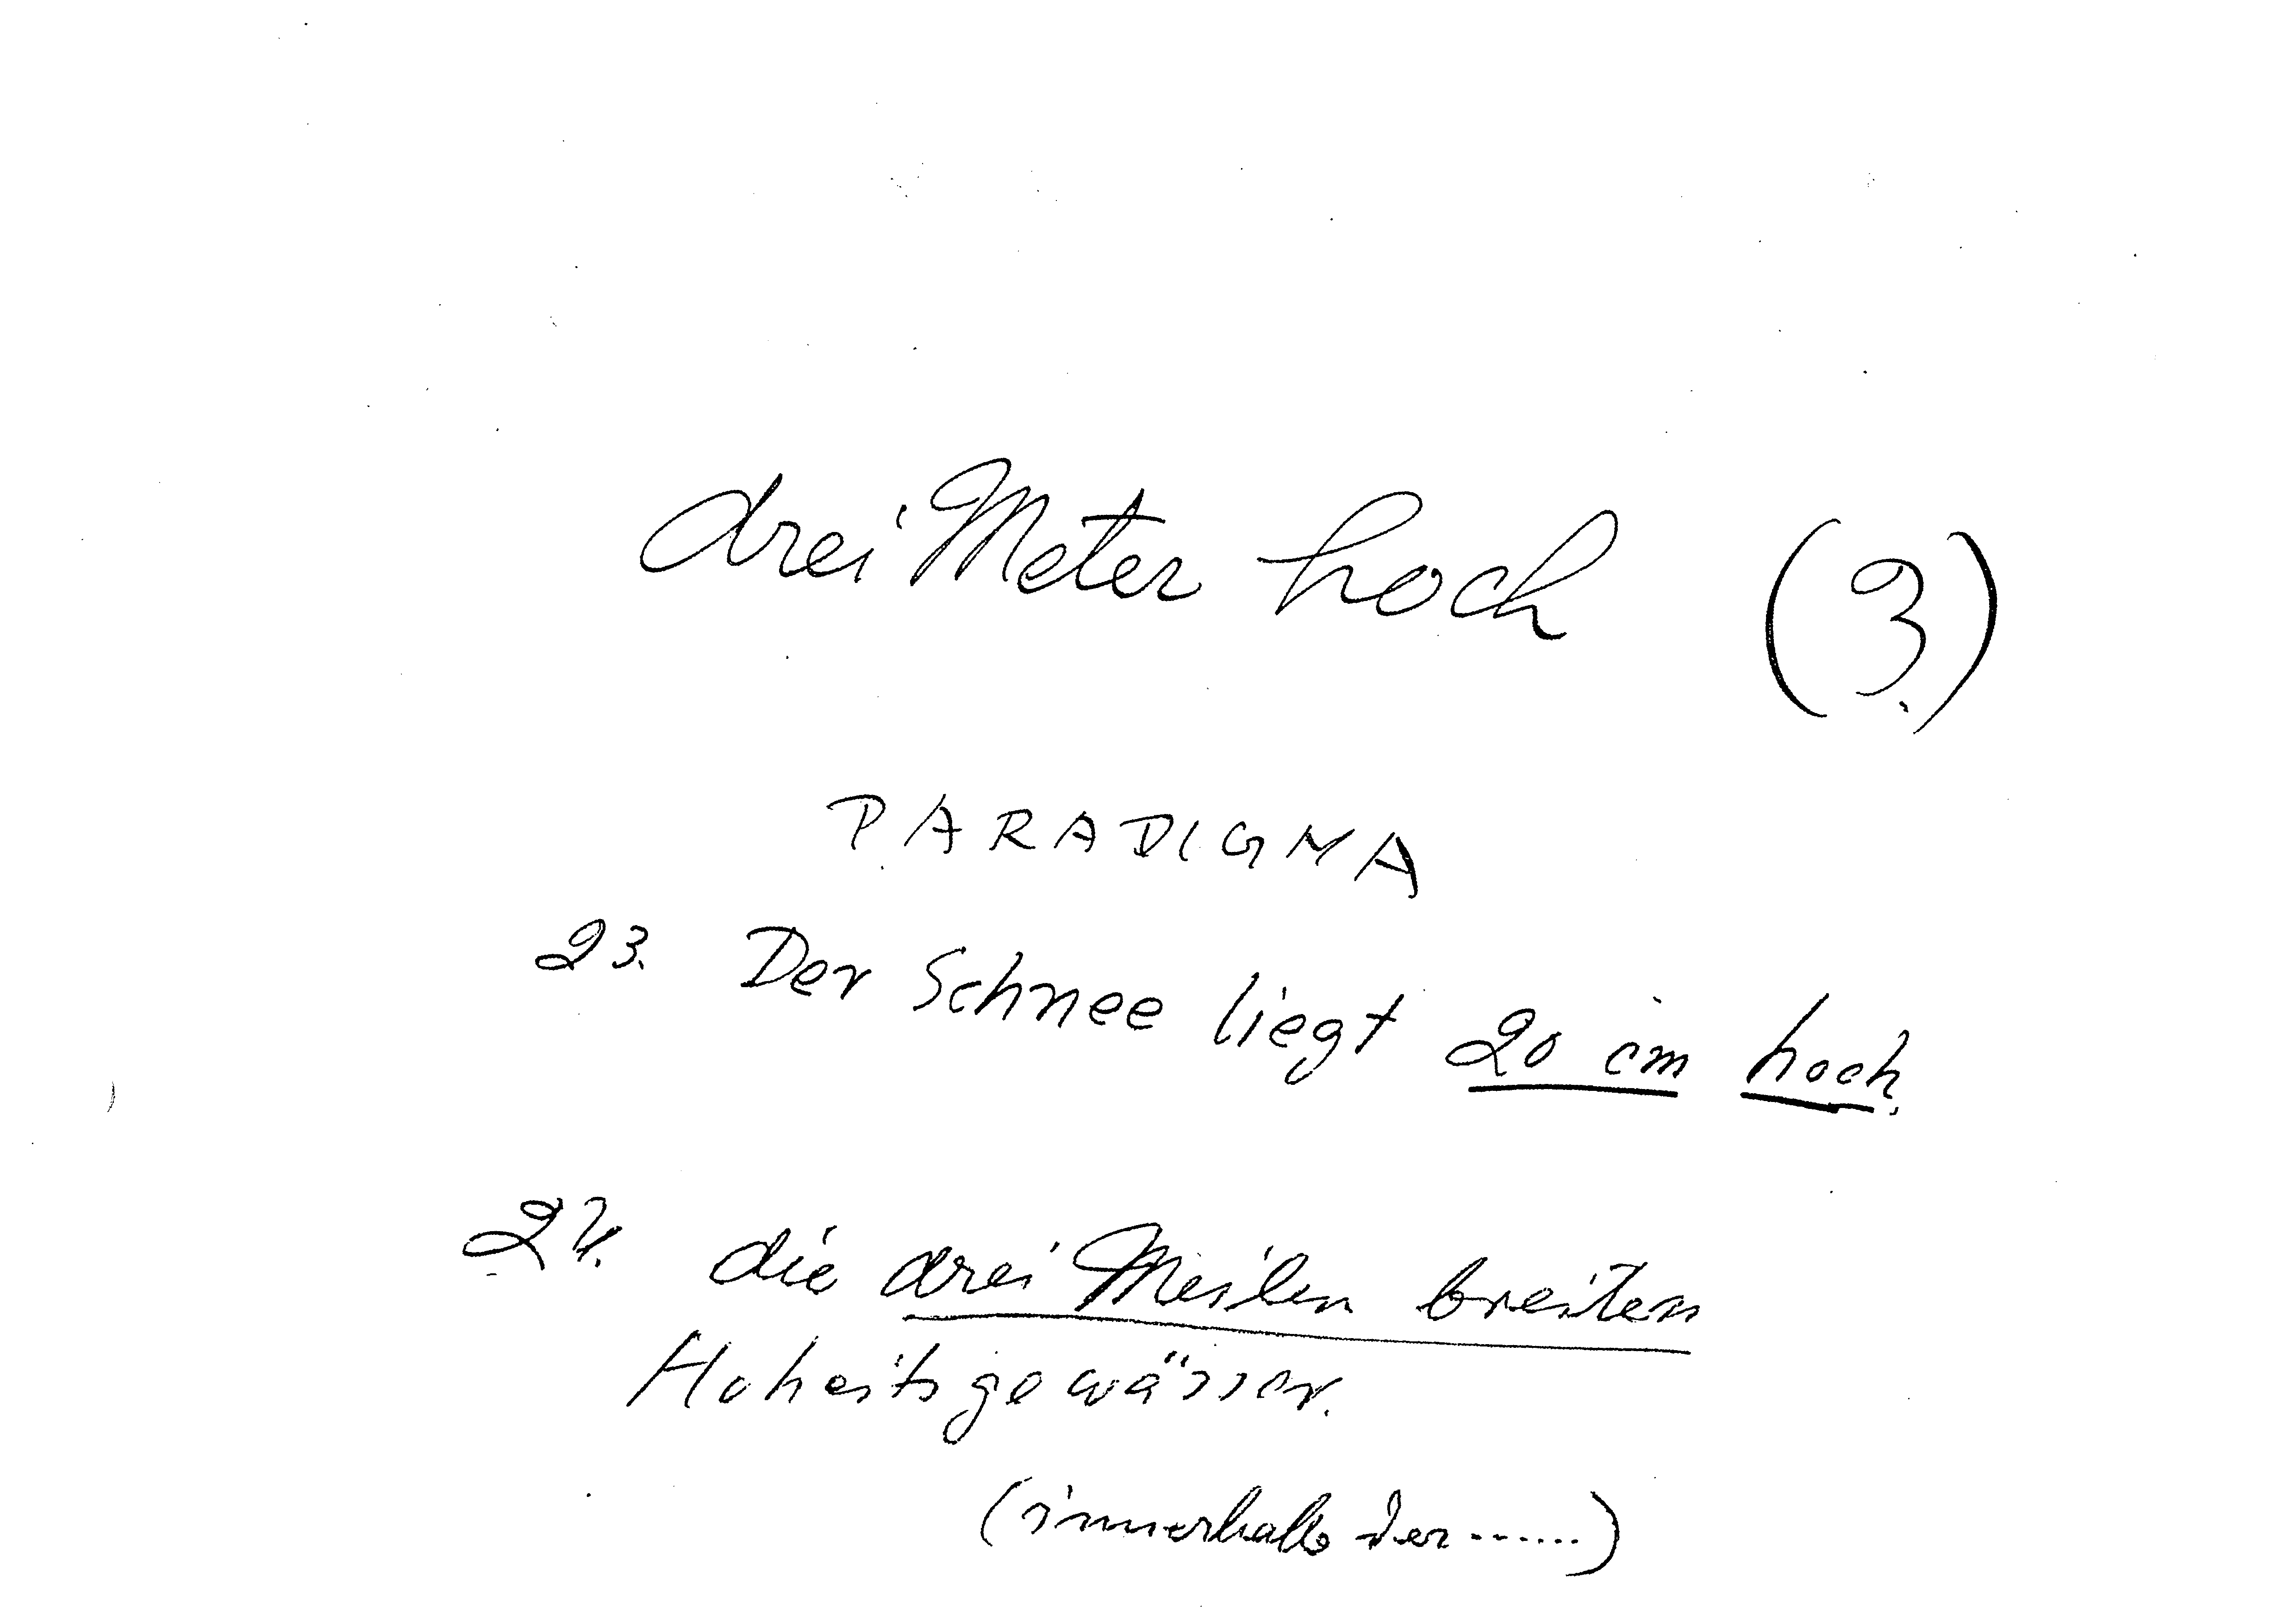 drei Meter hoch (3.)
PARADIGMA
23. Der Schnee liegt 20 cm hoch.
24. die drei Meilen breiten
Hoheitsgewässer.
(innerhalb der ......)